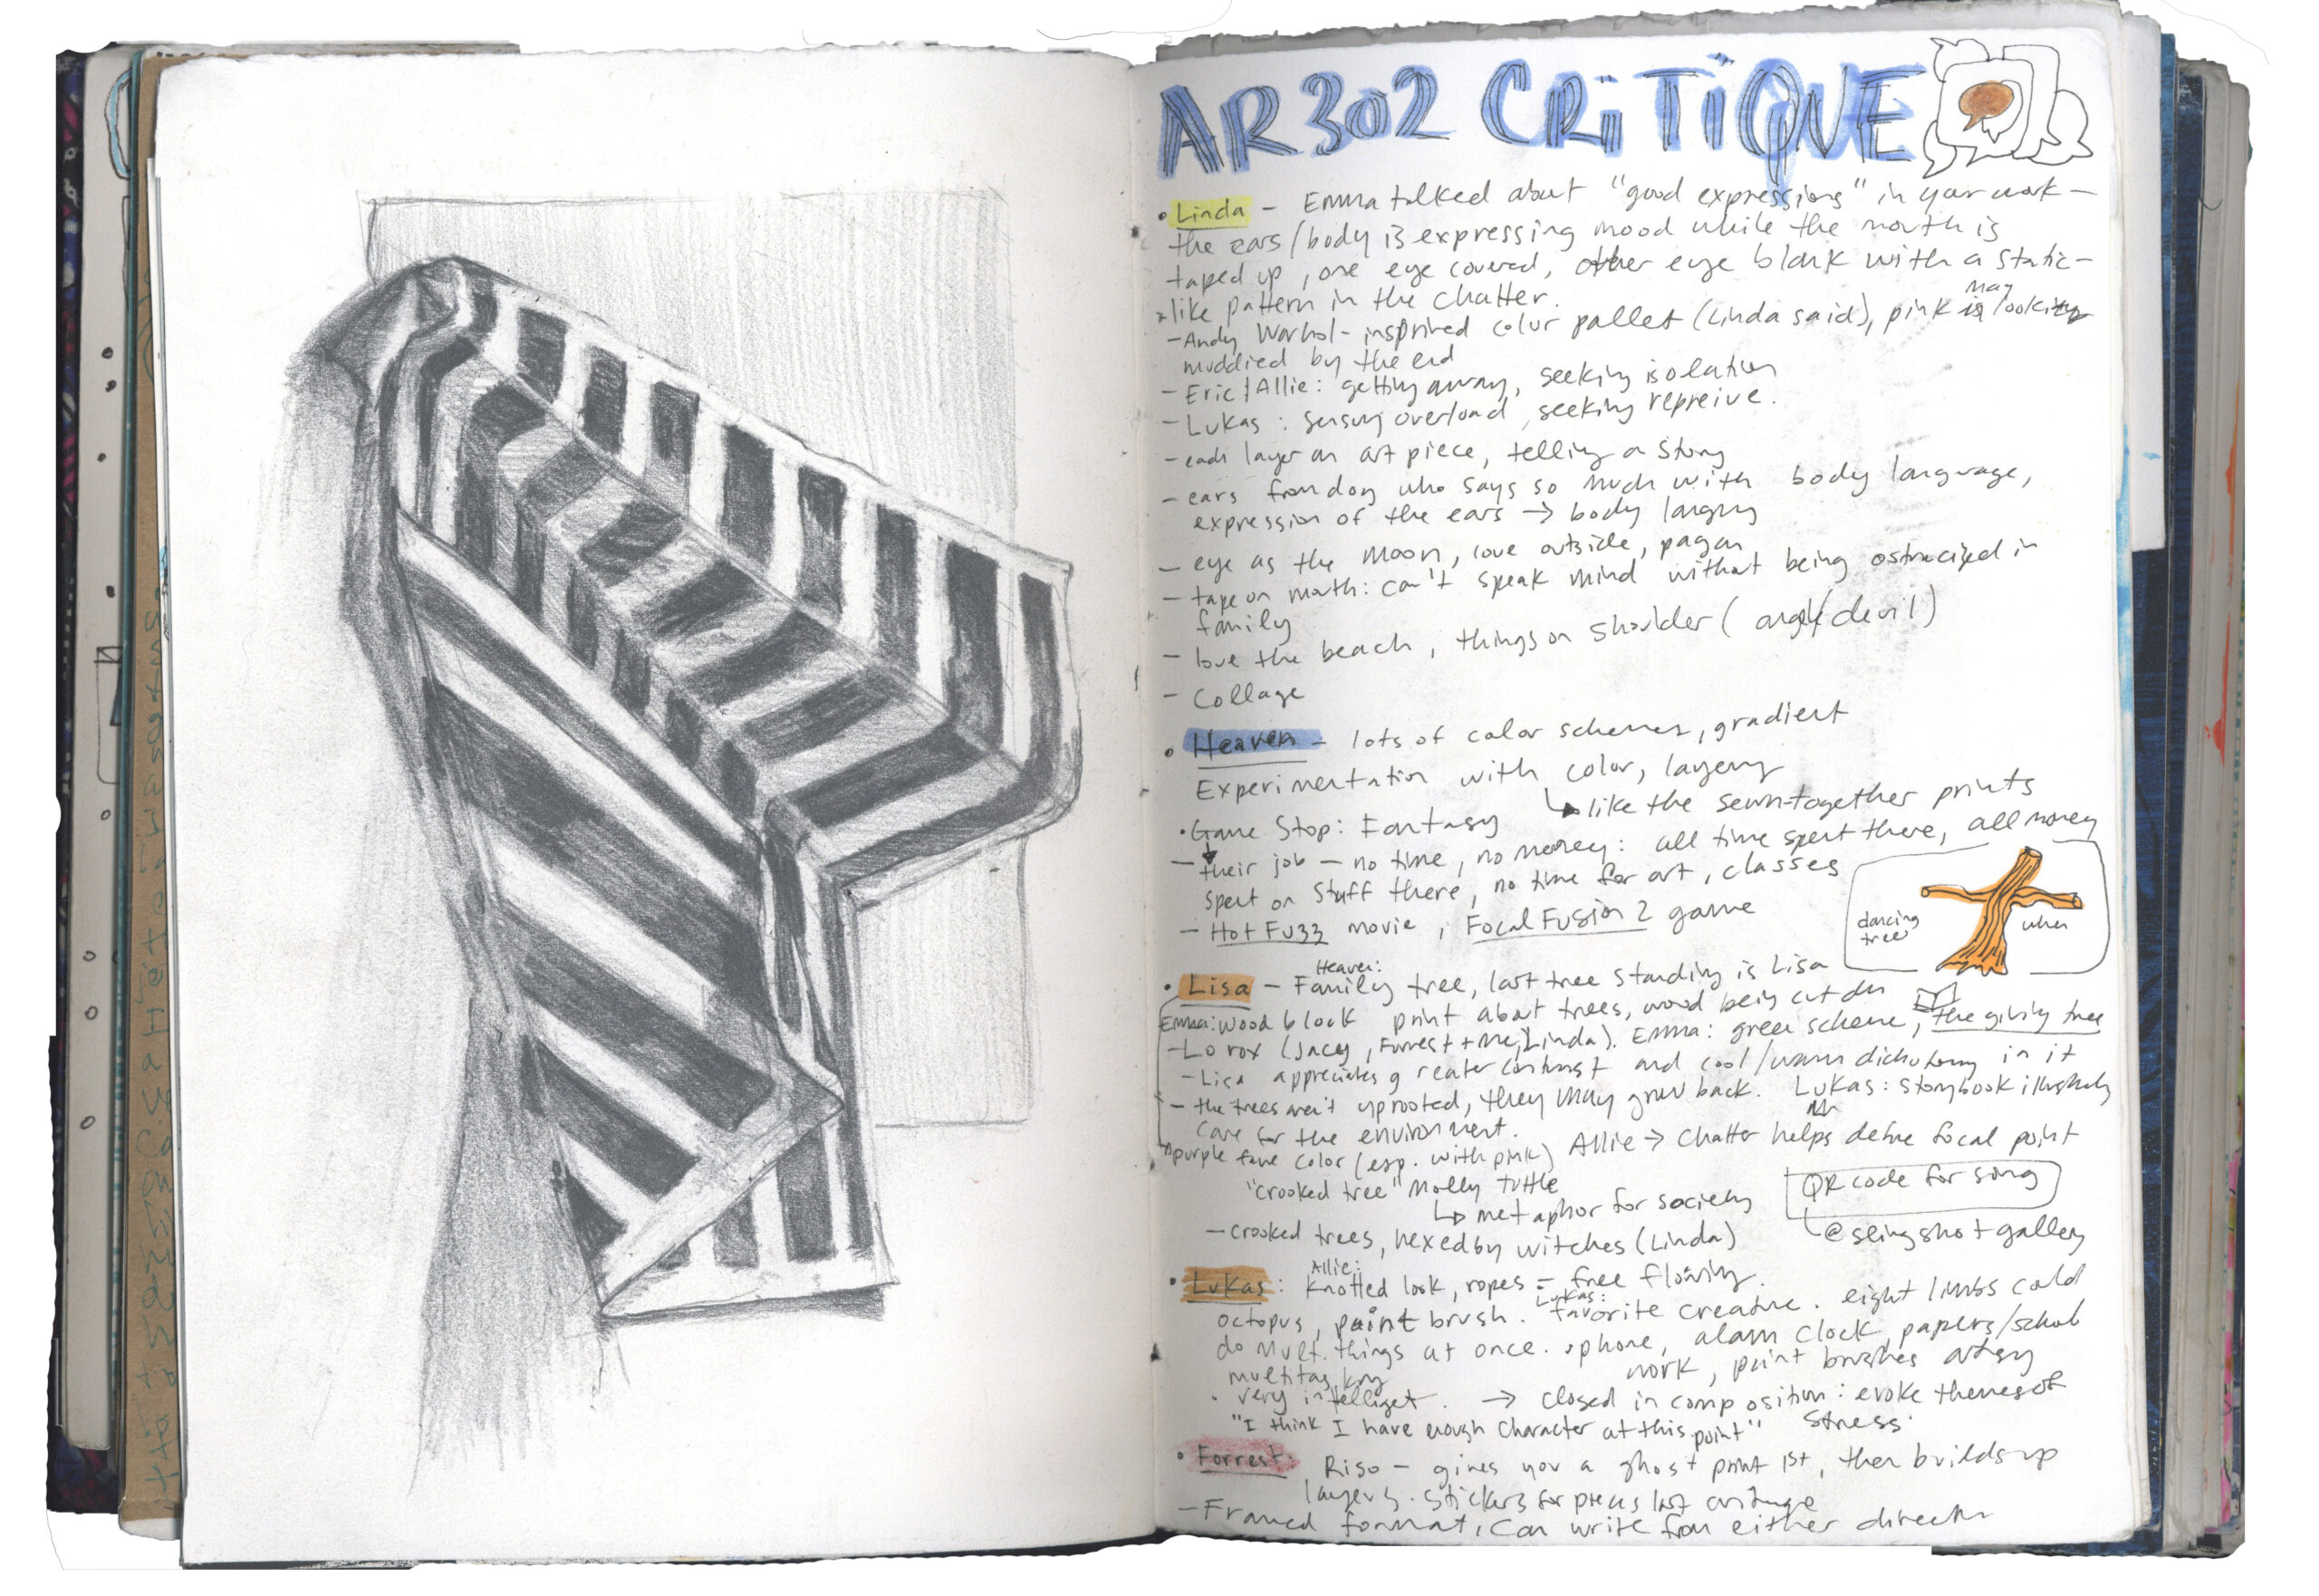 AR302 CRiTiQUE
• Linda – Emma talked about "good expressions" in your work –
the ears/body is expressing mood while the mouth is
taped up, one eye covered, other eye blank with a static-
like pattern in the chatter.
– Andy Warhol-inspried color pallet (Linda said), pink is may looking
muddied by the end
– Eric & Allie: getting away, seeking isolation
– Lukas: sensory overload, seeking repreive.
– each layer an art piece, telling a story
– ears from dog who says so much with body language,
expression of the ears → body languag
– eye as the moon, love outside, pagan
– tape on mouth: can't speak mind without being ostracized in
family
– love the beach, things on shoulder (angel/devil)
– Collage
• Heaven – lots of color schemes, gradient
Experimentation with color, layering
↳ like the sewn-together prints
• Game Stop: Fantasy
– their job – no time, no money: all time spent there, all money
spent on stuff there, no time for art, classes
– Hot Fuzz movie, Focal Fusion 2 game
dancing tree
when
Heaven:
• Lisa – Family tree, last tree standing is Lisa
Emma: wood block print about trees, wood being cut down
– Lorox (Jacy, Forrest + me, Linda). Emma: green scheme, the giving tree
– Lisa appreciates greater contrast and cool/warm dichotomy in it
– the trees aren't uprooted, they may grow back. Lukas: storybook illustrating
care for the environment.
purple fave color (esp. with pink) Allie → Chatter helps define focal point
"Crooked tree" Molly Tuttle
↳ metaphor for society
QR code for song
↳ @slingshot gallery
– crooked trees, hexed by witches (Linda)
Allie:
• Lukas: Knotted look, ropes = free flowing.
Lukas:
octopus, paint brush. favorite creature. eight limbs could
do mult. things at once. • phone, alarm clock, papers/school
multitasking work, paint brushes artsy
• very intelliget. → closed in composition: evoke themes of
"I think I have enough character at this point" stress.
• Forrest: Riso – gives you a ghost print 1st, then builds up
layers. Stickers for pieces last critique
– Framed format, can write from either direction